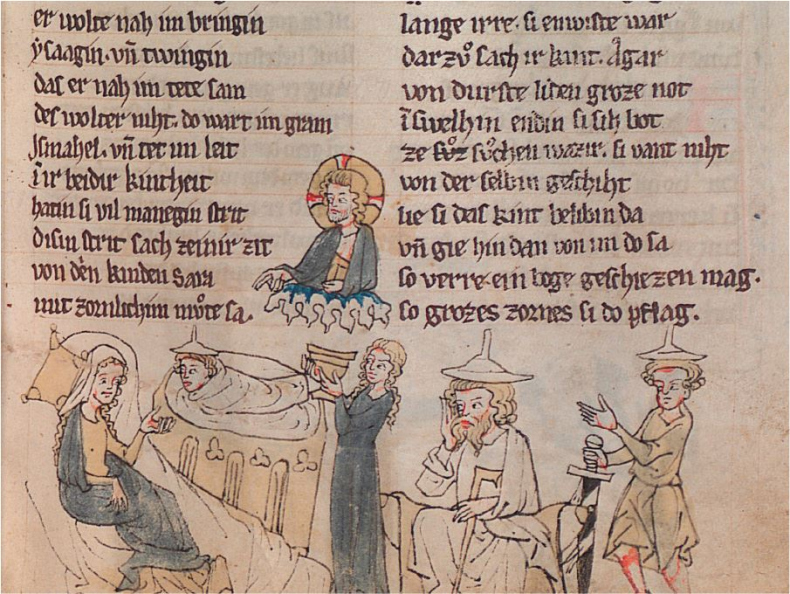 er wolte nah im bringin
ẏsaagin. vn̄ twingin
das er nah im tete sam
des wolter niht. do wart im gram
Jsmahel. vn̄ tet im leit
ī ir beidir kintheit
hatin si vil manegin strit
disin strit sach zeinir zit
von den kinden Sara
mit zornlichim mv̊te sa.
lange irre. si enwiste war
darzv̊ sach ir kint. Agar
von durste liden groze not
ī swelhin endin si sih bot
ze sv̊chen wazir. si vant niht
von der selbin geschiht
lie si das kint belibin da
vn̄ gie hin dan von im do sa
so verre. ein boge geschiezen mag.
so grozes zornes si do pflag.